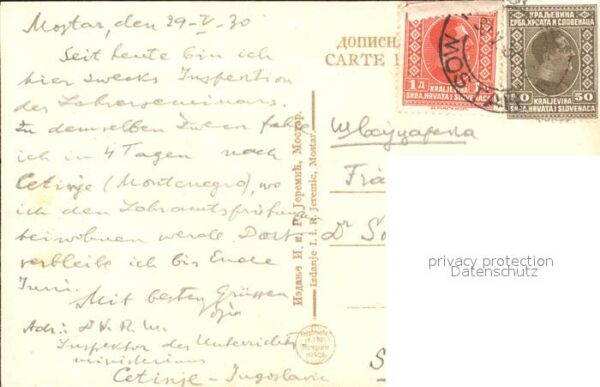 Mostar, den 29-V-30
Seit heute bin ich
hier zwecks Inspektion
des Lehrerseminars.
Zu demselben Zwecke fahre
ich in 4 Tagen nach
Cetinje (Montenegro), wo
ich den Lehramtsprüfungen
beiwohnen werde. Dort
verbleibe ich bis Ende
Juni.
Mit besten Grüssen
Adr.: Dr V. R. M.
Inspektor des Unterrichts
ministeriums
Cetinje - Jugoslavie
ДОПИСН
CARTE
Издање И. и Р. Јеремић, Мостар.
Izdanje I. i R. Jeremić, Mostar.
1 Д
КРАЉЕВИНА
SRBA, HRVATA I SLOVENACA
КРАЉЕВИНА
СРБА, ХРВАТА И СЛОВЕНАЦА
50
KRALJEVINA
SRBA, HRVATA I SLOVENACA
MOSTAR
Швајцарска
Dr
privacy protection
Datenschutz